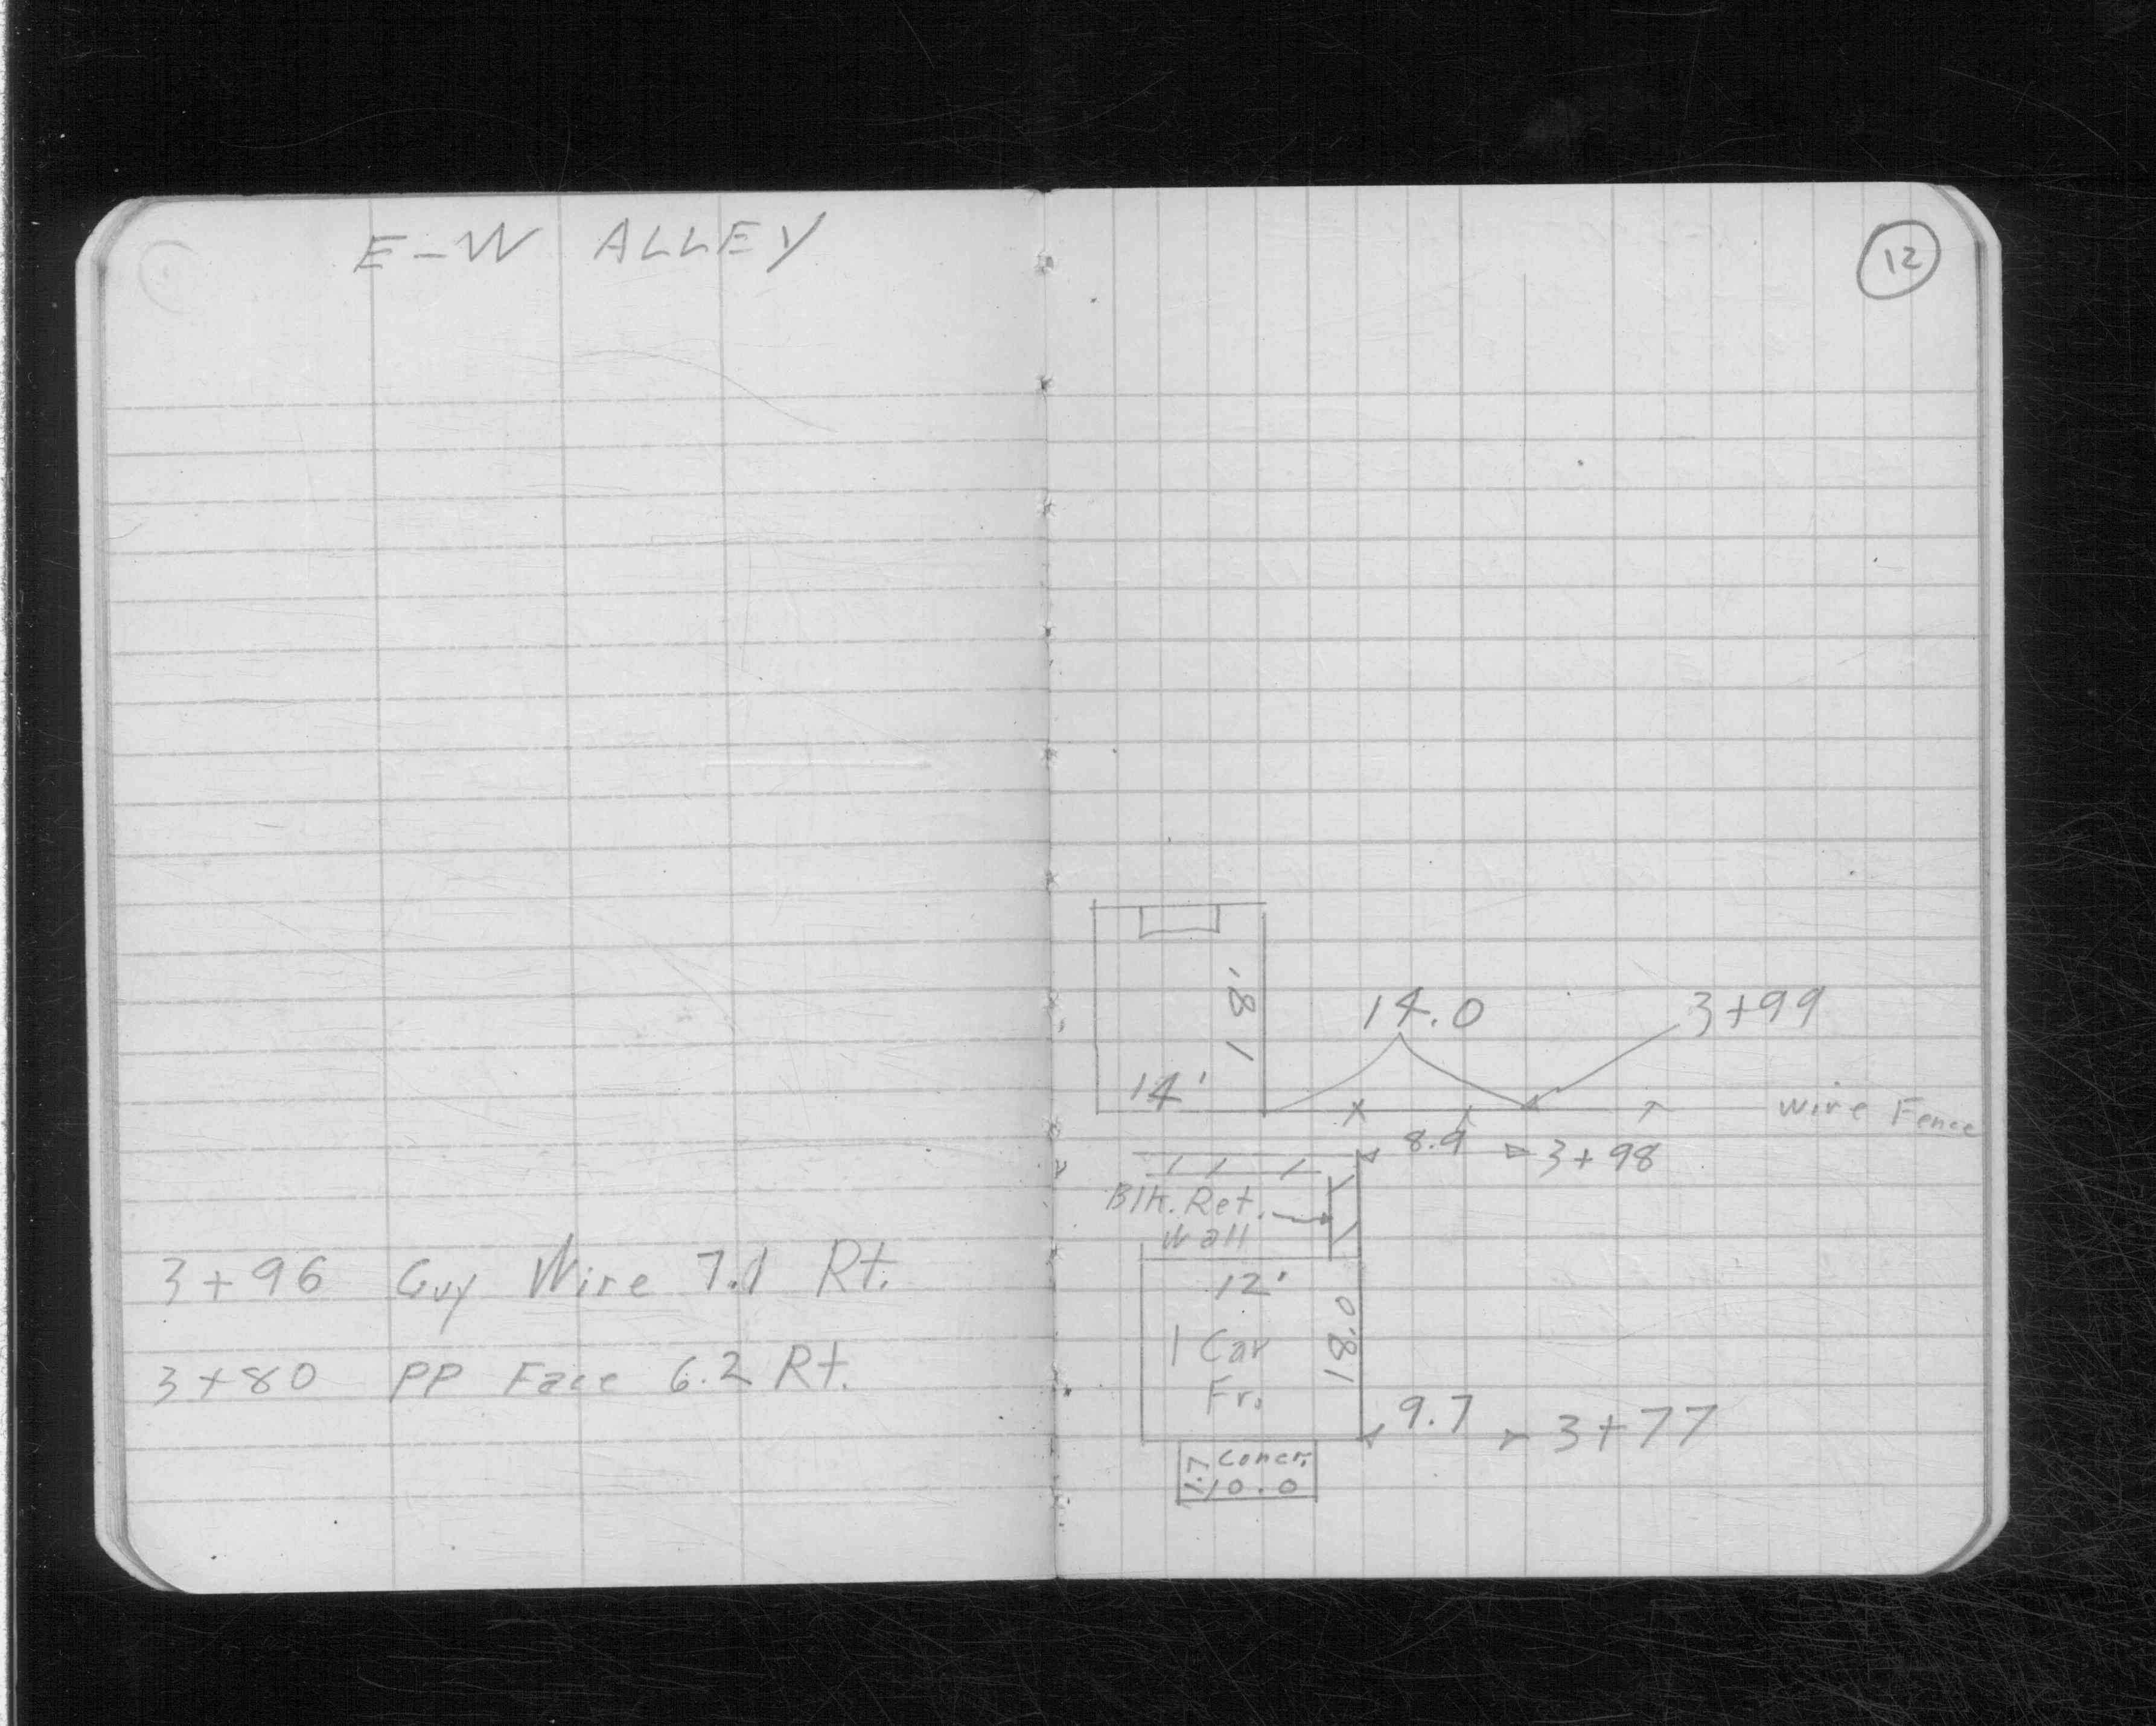 E-W ALLEY
3+96 Guy Wire 7.1 Rt.
3+80 PP Face 6.2 Rt.
12
18'
14.0
3+99
14'
Wire Fence
8.9
3+98
Blk. Ret.
Wall
12'
18.0
1 Car
Fr.
9.7
3+77
1.7
Concr.
10.0